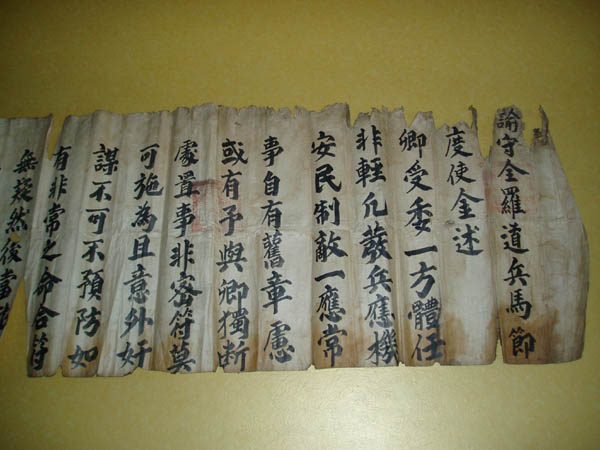 諭守全羅道兵馬節
度使金述
卿受委一方體任
非輕凡發兵應機
安民制敵一應常
事自有舊章慮
或有予與卿獨断
處置事非密符莫
可施為且意外奸
謀不可不預防如
有非常之命合符
無疑然後當